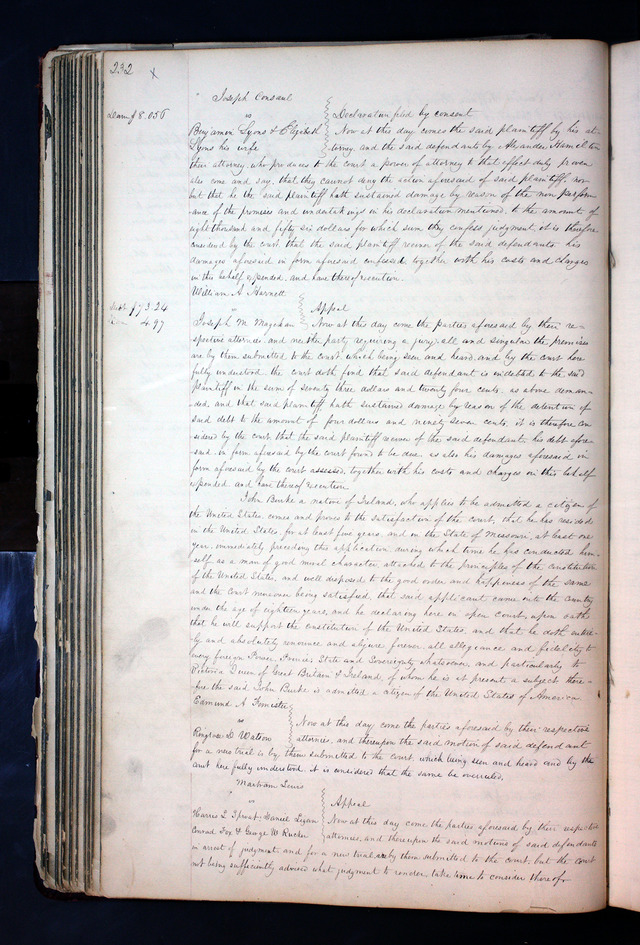 232 x
Joseph Consaul
Dam $8.056
vs
Declaration filed by consent
Benjamin Lyons & Elizabeth
Lyons his wife
Now at this day comes the said plaintiff by his at-
torney, and the said defendants by Alexander Hamilton
their attorney, who produces to the court a power of attorney to that effect duly proven
also come and say, that they cannot deny the action aforesaid of said plaintiff, nor
but that he the said plaintiff hath sustained damage by reason of the non perform
ance of the promises and undertakings in his declaration mentioned, to the amount of
eight thousand and fifty six dollars for which sum they confess judgment, it is therefore
considered by the court that the said plaintiff recover of the said defendants his
damages aforesaid in form aforesaid confessed together with his costs and charges
in this behalf expended, and have thereof execution.
William A Harnett
Debt $73.24
Dam 4.97
vs
Appeal
Joseph M.
Now at this day come the parties aforesaid by their re-
spective attornies, and neither party requiring a jury, all and singular the premises
are by them submitted to the court which being seen and heard, and by the court here
fully understood, the court doth find that said defendant is indebted to the said
plaintiff in the sum of seventy three dollars and twenty four cents, as above deman-
ded, and that said plaintiff hath sustained damage by reason of the detention of
said debt to the amount of four dollars and ninety seven cents, it is therefore con
sidered by the court that the said plaintiff recover of the said defendant his debt afore-
said in form aforesaid by the court found to be due as also his damages aforesaid in
form aforesaid by the court assessed, together with his costs and charges in this behalf
expended and have thereof execution
John Burke a native of Ireland, who applies to be admitted a citizen of
the United States, comes and proves to the satisfaction of the court, that he has resided
in the United States, for at least five years, and in the State of Missouri, at least one
year, immediately preceding this application during which time he has conducted him-
self as a man of good moral character, attached to the principles of the constitution
of the United States, and well disposed to the good order and happiness of the same
and the Court moreover being satisfied, that said applicant came into the country
under the age of eighteen years, and he declaring here in open court, upon oath
that he will support the constitution of the United States, and that he doth entire-
ly and absolutely renounce and abjure forever all allegiance and fidelity to
every foreign Power, Prince, State and Sovereignty whatsoever, and particularly to
Victoria Queen of Great Britain & Ireland, of whom he is at present a subject there-
fore the said John Burke is admitted a citizen of the United States of America
Edmund A
vs
D Watson
Now at this day come the parties aforesaid by their respective
attornies, and thereupon the said motion of said defendant
for a new trial is by them submitted to the court, which being seen and heard and by the
court here fully understood, it is considered that the same be overruled.
Lewis
vs
Appeal
Harris L Sprout, Daniel Ligon
Conrad Fox & George W Rucker
Now at this day come the parties aforesaid by their respective
attornies, and thereupon the said motions of said defendants
in arrest of judgment, and for a new trial are by them submitted to the court, but the court
not being sufficiently advised what judgment to render take time to consider thereof